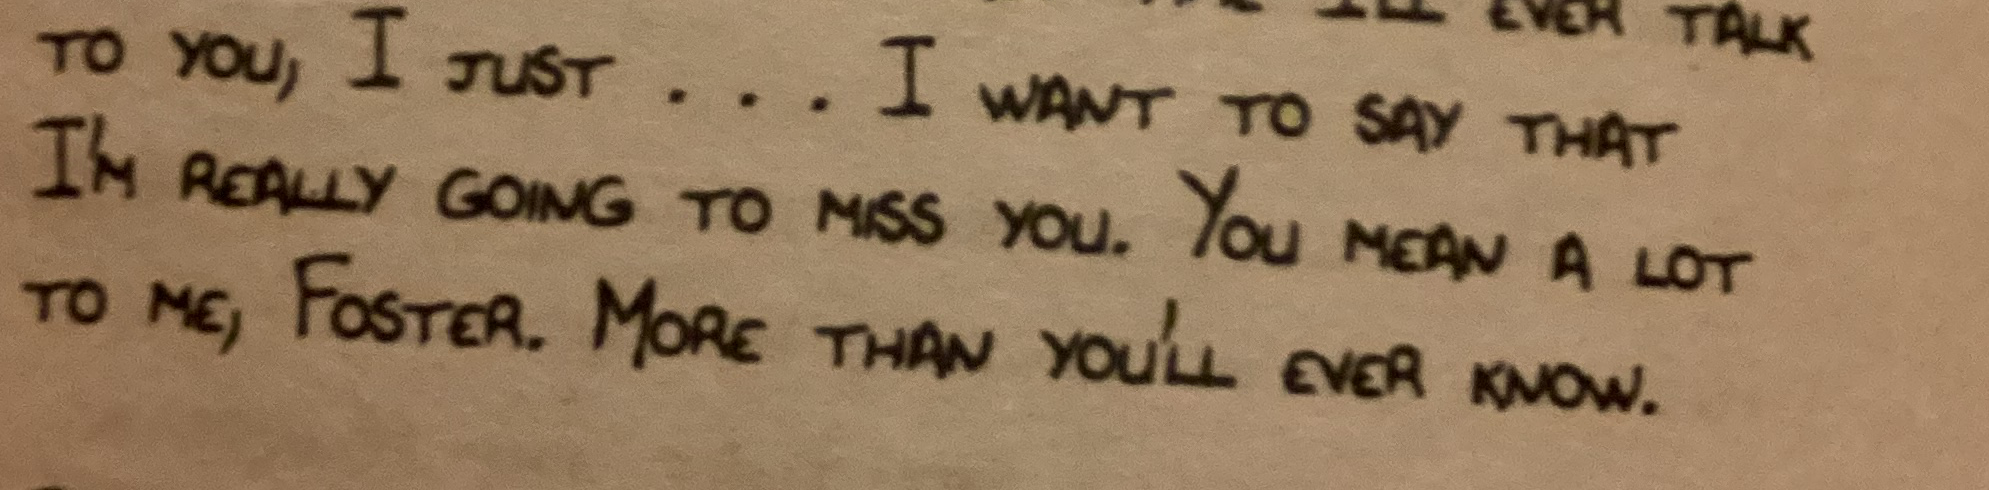 I'LL EVER TALK
TO YOU, I JUST . . . I WANT TO SAY THAT
I'M REALLY GOING TO MISS YOU. YOU MEAN A LOT
TO ME, FOSTER. MORE THAN YOU'LL EVER KNOW.